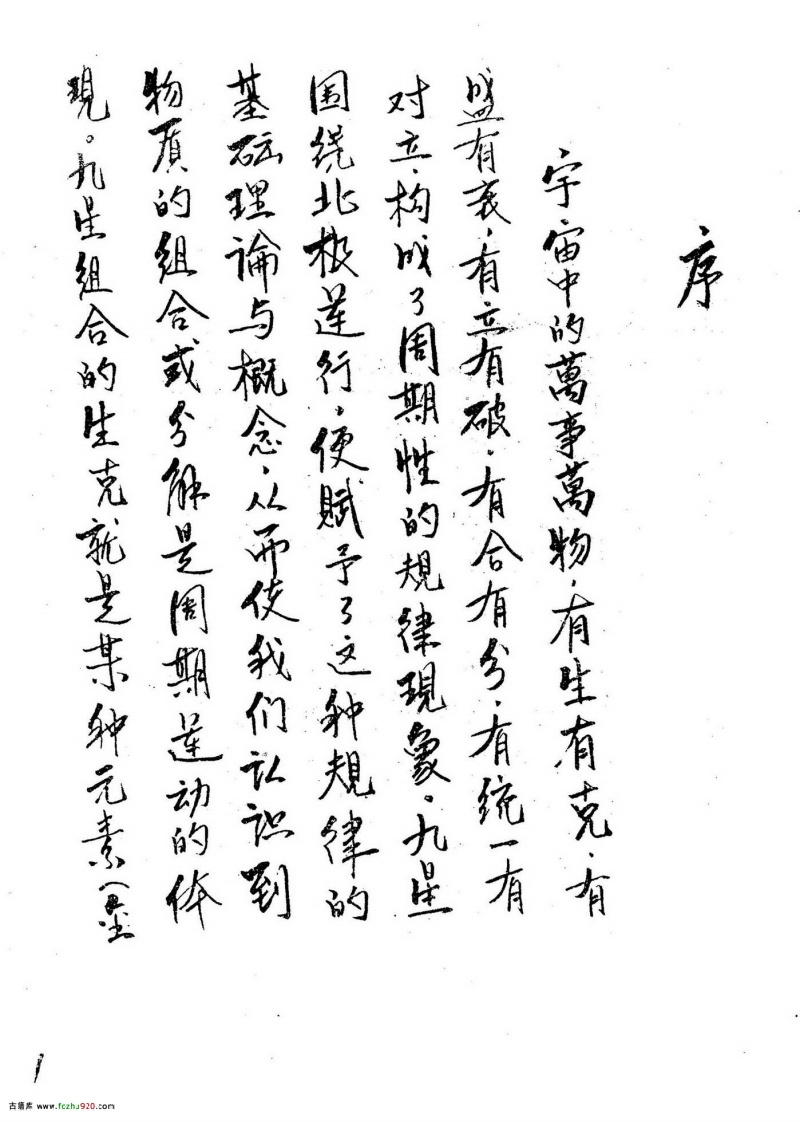 序
宇宙中的萬事萬物，有生有克，有
盛有衰，有立有破，有合有分，有统一有
对立，构成了周期性的规律現象。九星
围绕北极運行，便赋予了这种规律的
基础理論与概念，从而使我们认识到
物质的组合或分解是周期運动的体
現。九星组合的生克就是某种元素（
1
古籍库 www.fozhu920.com